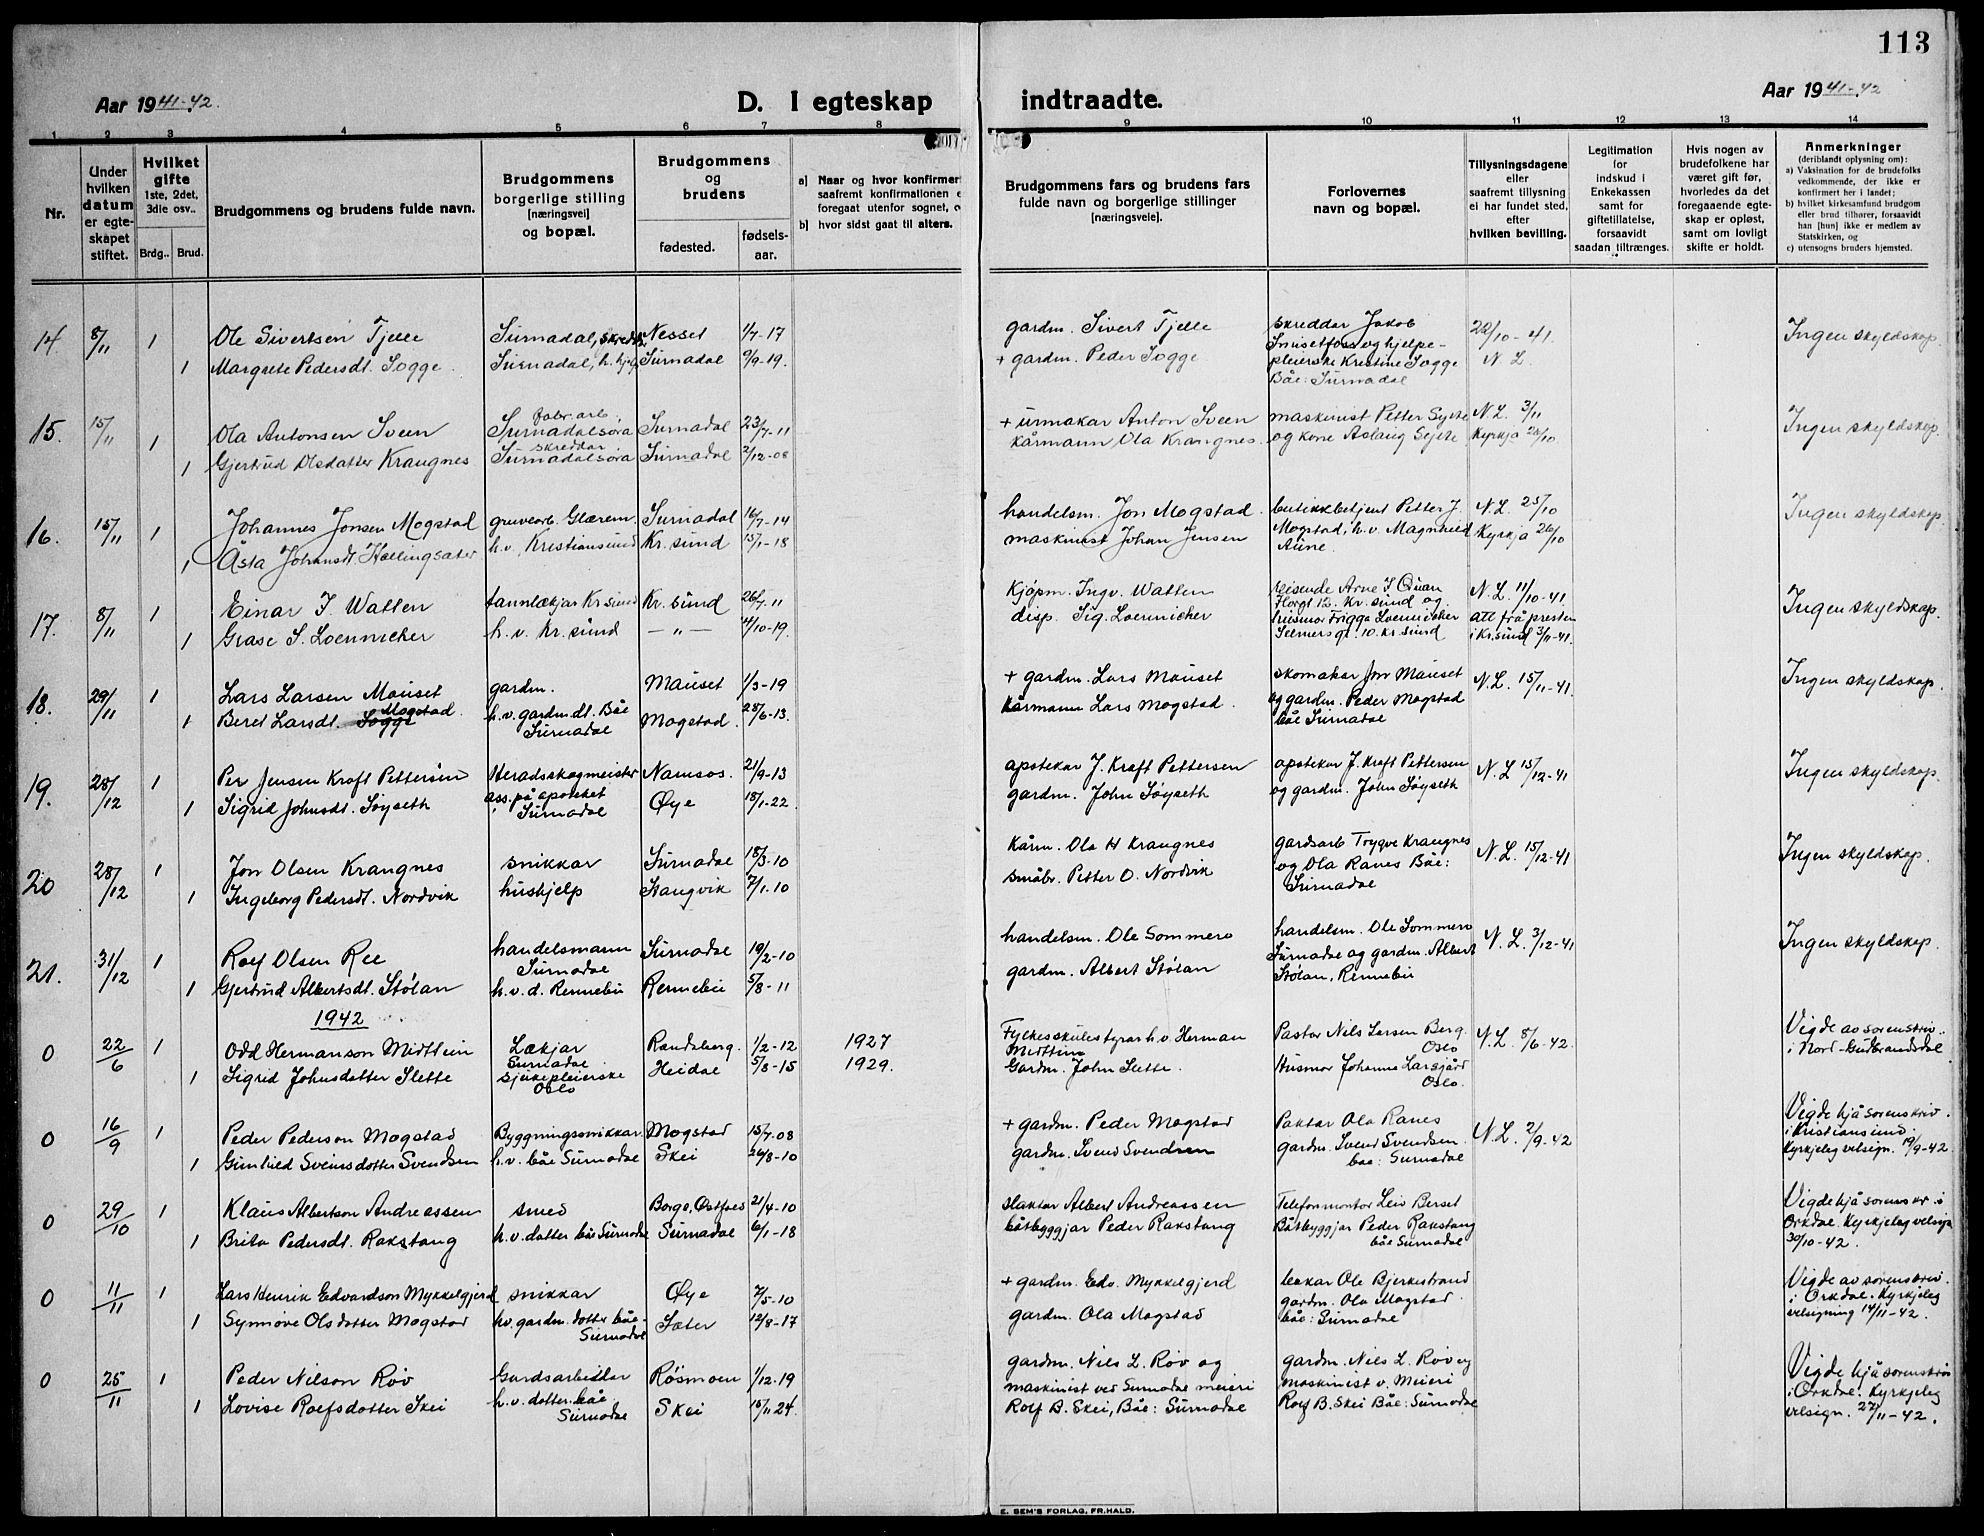 113
Aar 1941-42.
D. I egteskap indtraadte.
Aar 1941-42
1 2 3 4 5 6 7 8 9 10 11 12 13 14
Nr.
Under hvilken datum er egteskapet stiftet.
Hvilket gifte
1ste, 2det, 3die osv..
Brdg.. Brud.
Brudgommens og brudens fulde navn.
Brudgommens borgerlige stilling [næringsvei] og bopæl.
Brudgommens og brudens
fødested. fødsels-aar.
a] Naar og hvor konfirmert
saafremt konfirmationen e
foregaat utenfor sognet, o
b] hvor sidst gaat til alters.
Brudgommens fars og brudens fars
fulde navn og borgerlige stillinger
[næringsveie].
Forlovernes
navn og bopæl.
Tillysningsdagene
eller
saafremt tillysning
ei har fundet sted,
efter
hvilken bevilling.
Legitimation
for
indskud i
Enkekassen
samt for
giftetillatelse,
forsaavidt
saadan tiltrænges.
Hvis nogen av
brudefolkene har
været gift før,
hvorledes da det
foregaaende egte-
skap er opløst,
samt om lovligt
skifte er holdt.
Anmerkninger
(deriblandt oplysning om):
a) Vaksination for de brudefolks
vedkommende, der ikke er
konfirmert her i landet;
b) hvilket kirkesamfund brudgom
eller brud tilhører, forsaavidt
han [hun] ikke er medlem av
Statskirken, og
c) utensogns bruders hjemsted.
14 8/11 1 Ole Sivertsen Tjelle Surnadal, skreddar Nesset 1/7-17 gardm. Sivert Tjelle skreddar Jakob 22/10-41. Ingen skyldskap.
1 Margrete Pedersdt. Sogge. Surnadal, h. hjelp Surnadal 9/9-19. + gardm. Peder Sogge Snusetfoss og hjelpe- N. L.
pleierske Kristine Sogge
Båe: Surnadal
15. 15/11 1 Ola Antonsen Sveen fabr. arb. Surnadalsøra Surnadal 23/7-11 + urmakar Anton Sveen maskinist Petter Sæte N. L. 3/11 Ingen skyldskap.
1 Gjertrud Olsdatter Krangnes skreddar Surnadalsøra Surnadal 2/12-08 kårmann Ola Krangnes. og kone Aslaug Sæte Kyrkja 26/10
16. 15/11 1 Johannes Jonsen Mogstad gruvearb. Glærem. Surnadal 16/7-14 handelsm. Jon Mogstad butikkbetjent Petter J. N. L. 25/10 Ingen skyldskap.
1 Åsta Johansdt. Hallingsæter h. v. Kristiansund Kr. sund 15/1-18 maskinist Johan Jensen Mogstad, h. v. Magnhild Kyrkja 26/10
Aune.
17. 8/11 1 Einar I. Watten tannlækjar Kr sund Kr. sund 26/7-11 Kjøpm. Ingv. Watten reisende Arne S. Quan N. L. 11/10-41. Ingen skyldskap.
1 Grase S. Loennicher h. v. Kr. sund — „ — 4/10-19. disp. Sig. Loennicher Storgt 12. Kr. sund og att frå presten
husmor Frigga Loennicher i Kr.sund 3/11-41.
Selmersgt. 10. Kr sund
18. 29/11 1 Lars Larsen Mauset gardm. Mauset 1/3-19 + gardm. Lars Mauset skomakar Jon Mauset N. L. 15/11-41. Ingen skyldskap.
1 Beret Larsdt. Sogge Mogstad h. v. gardm. dt. Båe Surnadal Mogstad. 25/6-13. Kårmann Lars Mogstad. og gardm. Peder Mogstad
båe Surnadal
19. 28/12 1 Per Jensen Kraft Pettersen Heradsskogmeister Namsos. 21/9-13 apotekar J. Kraft Pettersen apotekar J. Kraft Pettersen N. L 15/12-41 Ingen skyldskap.
1 Sigrid Johnsdt. Søyseth ass. på apoteket Surnadal Øye 18/1-22 gardm. John Søyseth og gardm. John Søyseth
20 28/12 1 Jon Olsen Krangnes snikkar Surnadal 18/3-10 Kårm. Ola H Krangnes gardsarb Trygve Krangnes N. L. 15/12-41 Ingen skyldskap.
1 Ingeborg Pedersdt. Nordvik hushjelp Stangvik 7/1-10 småbr. Petter O. Nordvik og Ola Ranes Båe:
Surnadal
21. 31/12 1 Rolf Olsen Ree handelsmann Surnadal Surnadal 19/2-10 handelsm. Ole Sommerø handelsm. Ole Sommerø N. L. 3/12-41 Ingen skyldskap.
1 Gjertrud Albertsdt. Stølan h. v. d. Rennebu Rennebu 5/8-11 gardm. Albert Stølan Surnadal og gardm. Albert
Stølan, Rennebu
1942
0 22/6 1 Odd Hermanson Midttun Lækjar Surnadal Randaberg. 1/2-12 1927 Fylkesskulestyrar h.v. Herman Midttun Pastor Nils Larsen Berg. Oslo N. L 8/6-42. Vigde av sorenskriv..
1 Sigrid Johnsdotter Slette Sjukepleierske Oslo Heidal 5/8-15 1929. Gardm. John Slette. Husmor Johanna Larsgård Oslo. i Nord-Gudbrandsdal
0 16/9 1 Peder Pederson Mogstad Byggningssnikkar. Mogstad 15/7-08 + gardm. Peder Mogstad Paktar Ola Ranes N. L. 2/9-42 Vigde hjå sorenskriv.
1 Gunhild Sveinsdotter Svendsen h. v. båe Surnadal Skei 26/8-10 gardm. Svend Svendsen gardm. Svend Svendsen. i Kristiansund.
båe: Surnadal Kyrkjeleg velsign. 19/9-42
0 29/10 1 Klaus Albertson Andreassen smed Borge, Østfold 21/4-10 slaktar Albert Andreassen Telefonmontør Leiv Berset Vigde hjå sorenskr. i
1 Brita Pedersdt. Rakstang h. v. dotter båe Surnadal Surnadal 6/1-18 båtbyggjar Peder Rakstang Båtbyggjar Peder Rakstang Orkdal. Kyrkjeleg velsign
båe Surnadal 30/10-42.
0 11/11 1 Lars Henrik Edvardson Mykkelgjerd snikkar Øye 7/5-10 + gardm. Edv. Mykkelgjerd bakar Ole Bjerkestrand Vigde av sorenskriv.
1 Synnøve Olsdotter Mogstad hv. gardm. dotter båe Surnadal Sæter 12/8-17 gardm. Ola Mogstad gardm. Ola Mogstad i Orkdal. Kyrkjeleg
båe: Surnadal velsigning 14/11-42.
0 25/11 1 Peder Nilson Røv Gardsarbeidar Røsmoen 1/12-19 gardm. Nils L. Røv og gardm. Nils L. Røv og Vigde hjå sorenskriv
1 Lovise Rolfsdotter Skei h. v. dotter. båe Surnadal Skei 15/11 24. maskinist ved Surnadal meieri maskinist v. Meieri i Orkdal. Kyrkjeleg
Rolf B. Skei, Båe: Surnadal Rolf B. Skei Båe: Surnadal velsign. 27/11-42.
E. SEM'S FORLAG, FR.HALD.